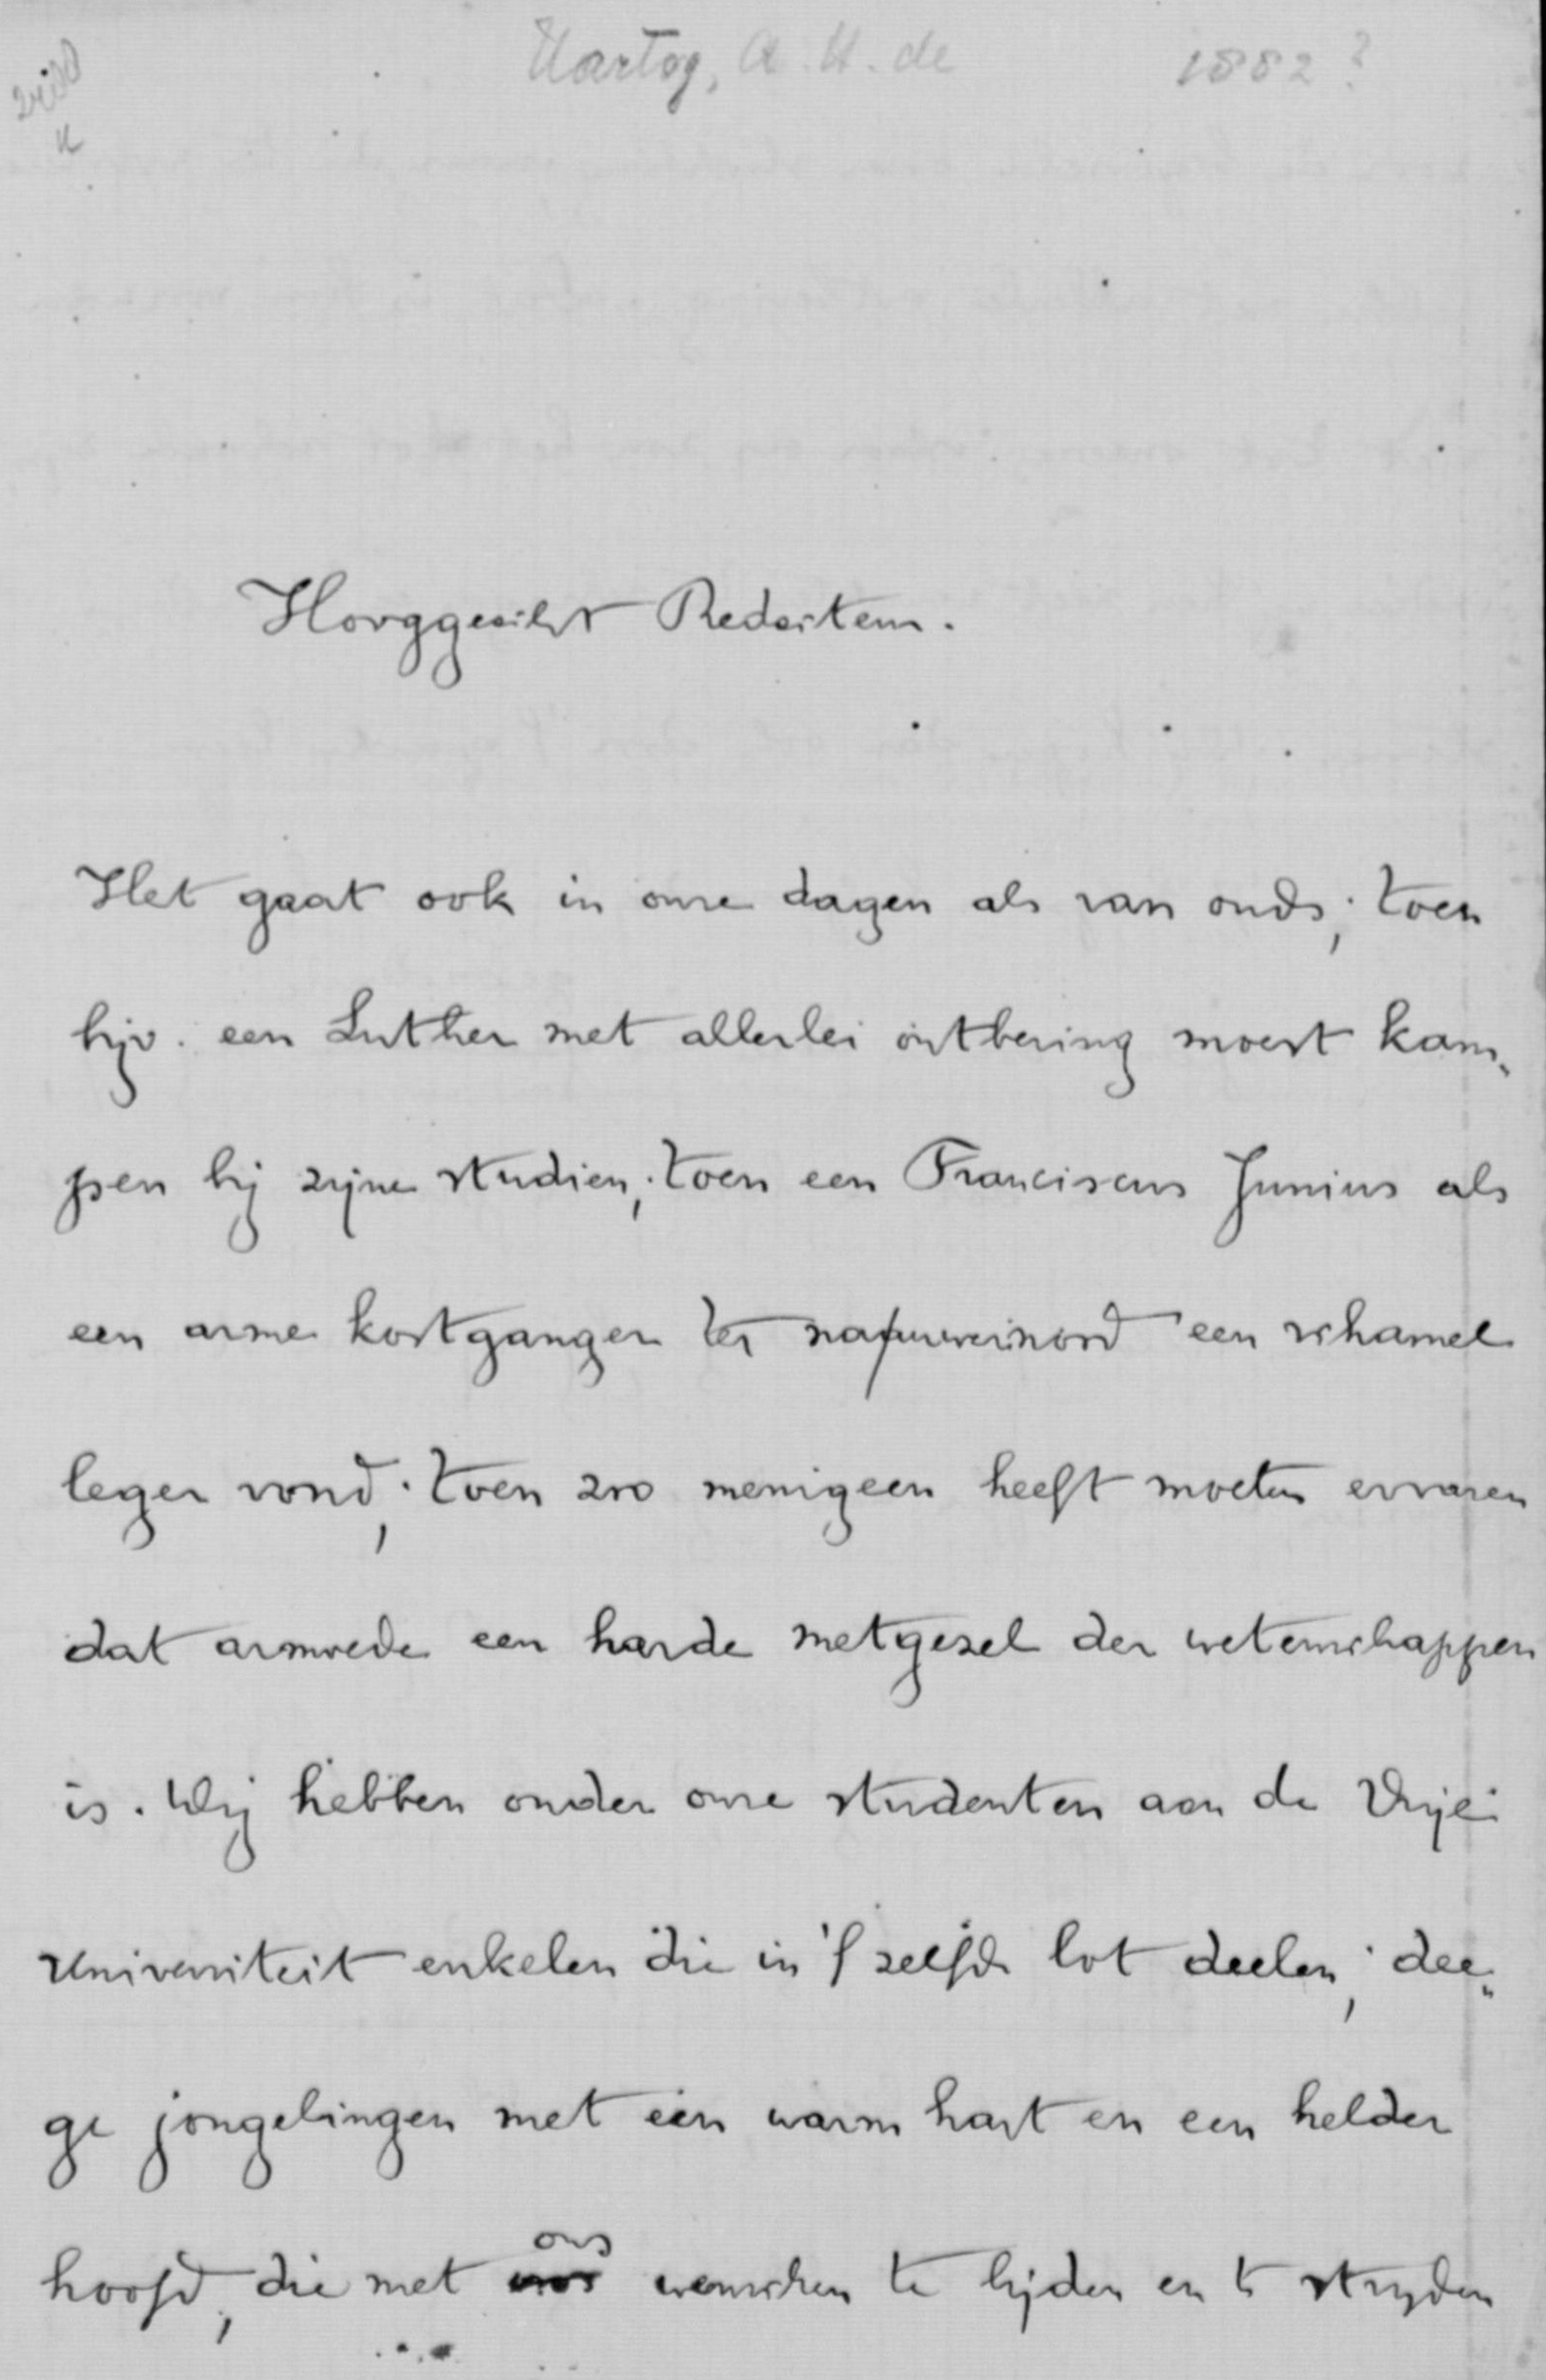 Hartog, A. H. de 1882?
Hooggeacht Redacteur.
Het gaat ook in onze dagen als van ouds; toen
bijv. een Luther met allerlei ontbering moest kam„
pen bij zijne studien; toen een Franciscus Junius als
een arme kostganger ter nauwernood een schamel
leger vond; toen zoo menigeen heeft moeten ervaren
dat armoede een harde metgezel der wetenschappen
is. Wij hebben onder onze studenten aan de Vrije
Universiteit enkelen die in 't zelfde lot deelen; dee„
ge jongelingen met een warm hart en een helder
ons
hoofd, die met wenschen te lijden en te strijden